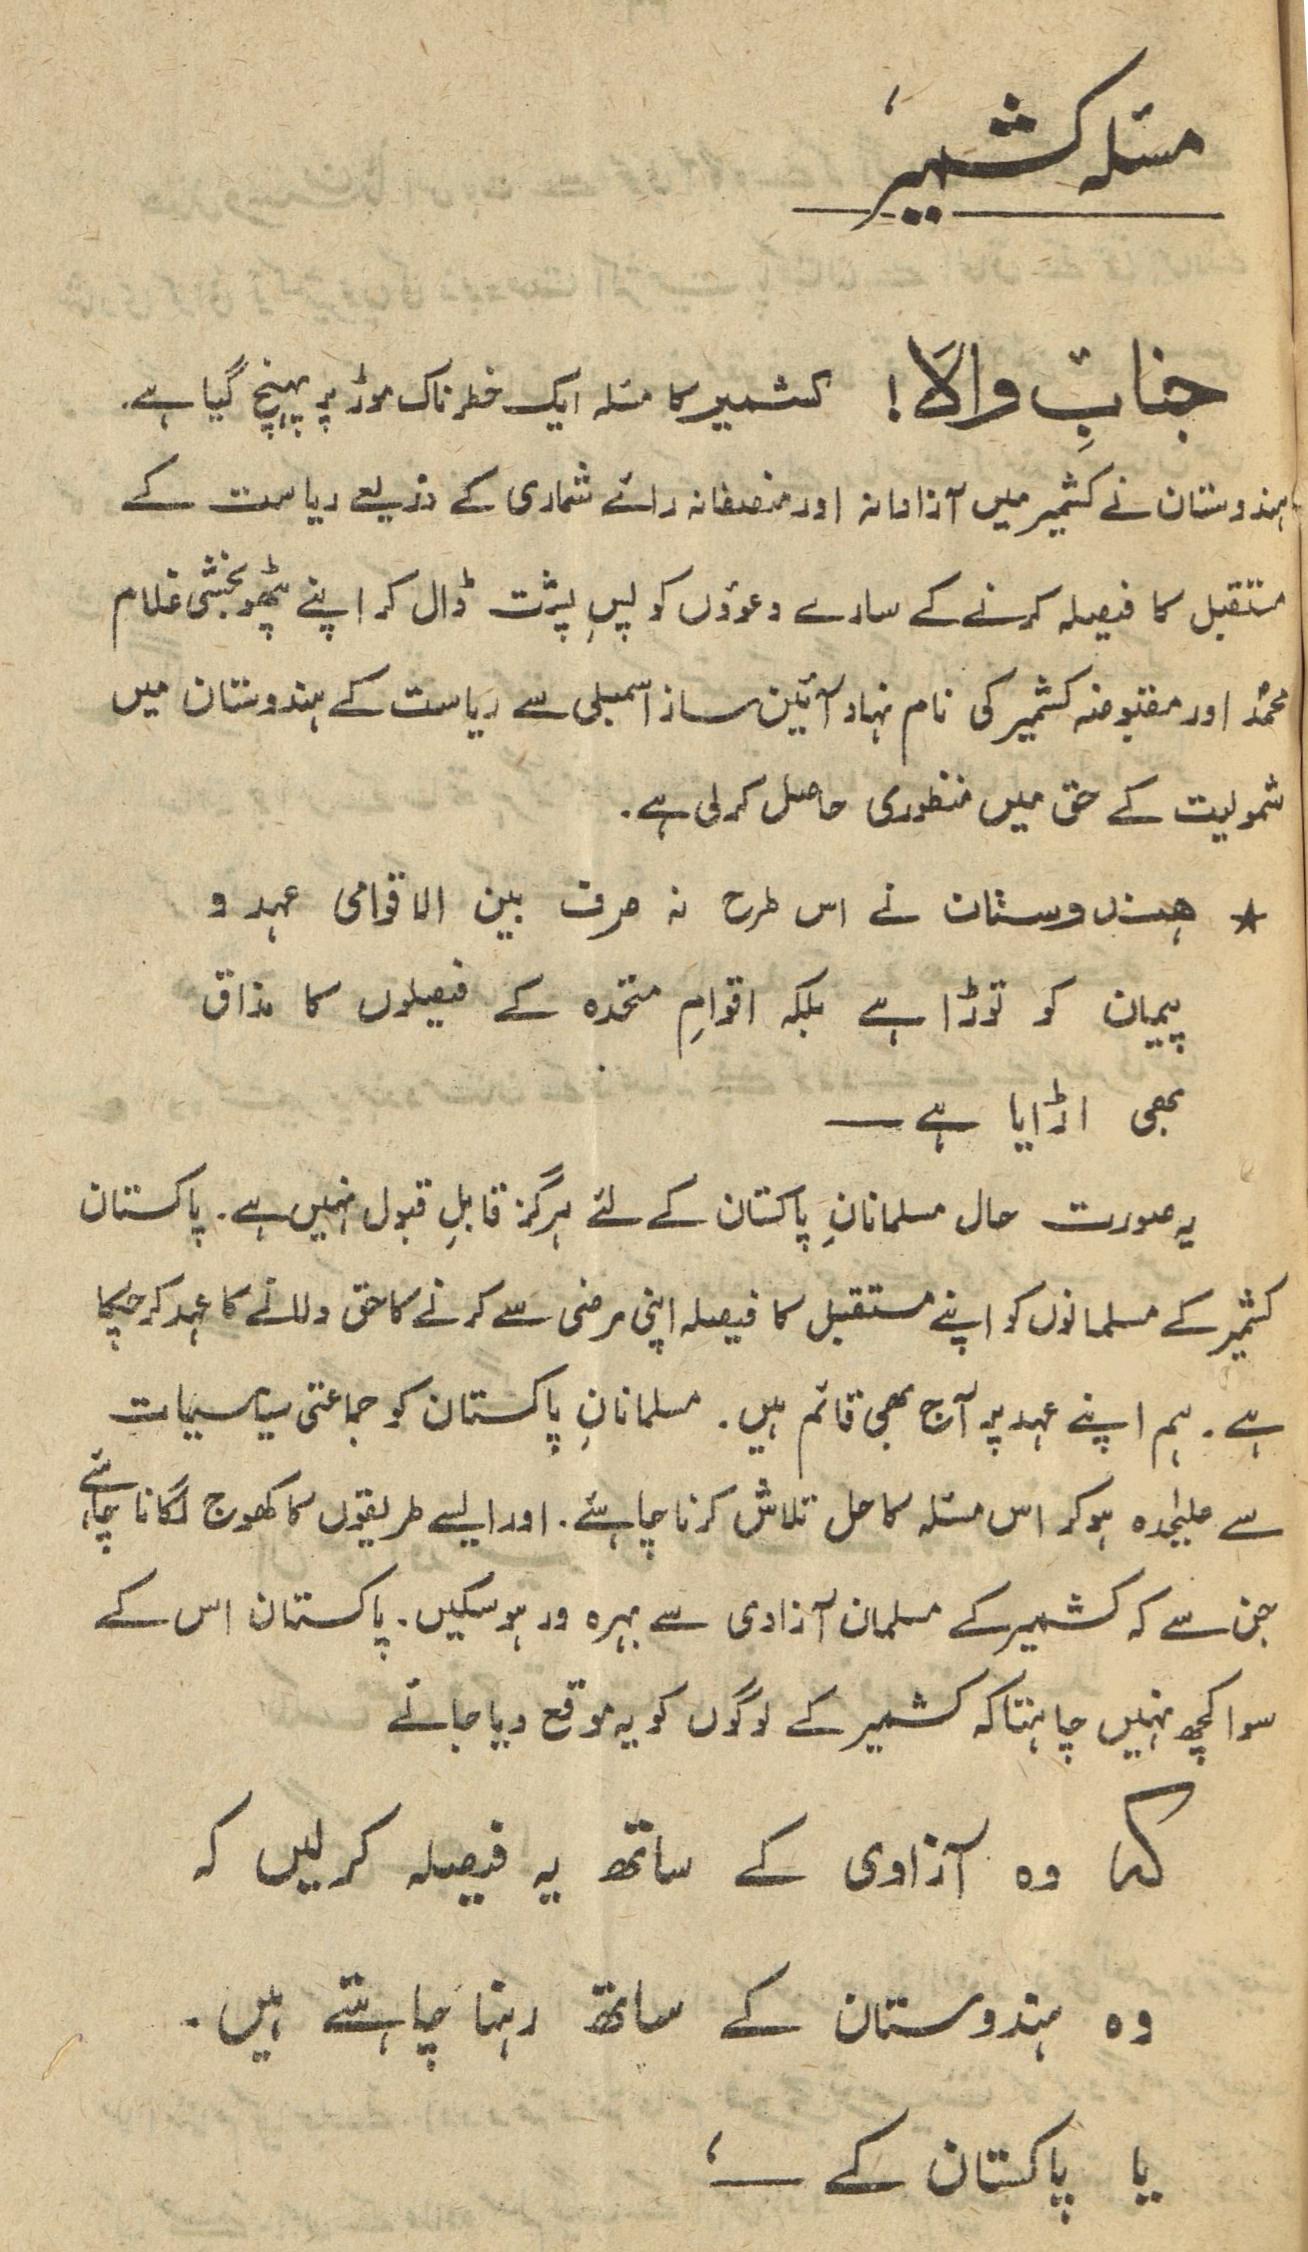 مسئلہ کشمیر،
جنابِ والا! کشمیر کا مسئلہ ایک خطرناک موڑ پر پہنچ گیا ہے۔
ہندوستان نے کشمیر میں آزادانہ اور منصفانہ رائے شماری کے ذریعے ریاست کے
مستقبل کا فیصلہ کرنے کے سارے دعوؤں کو پسِ پشت ڈال کر اپنے پٹھو بخشی غلام
محمد اور مقبوضہ کشمیر کی نام نہاد آئین ساز اسمبلی سے ریاست کے ہندوستان میں
شمولیت کے حق میں منظوری حاصل کر لی ہے۔
★ ہندوستان نے اس طرح نہ صرف بین الاقوامی عہد و
پیمان کو توڑا ہے بلکہ اقوامِ متحدہ کے فیصلوں کا مذاق
بھی اڑایا ہے —
یہ صورت حال مسلمانانِ پاکستان کے لئے ہرگز قابلِ قبول نہیں ہے۔ پاکستان
کشمیر کے مسلمانوں کو اپنے مستقبل کا فیصلہ اپنی مرضی سے کرنے کا حق دلانے کا عہد کر چکا
ہے۔ ہم اپنے عہد پر آج بھی قائم ہیں۔ مسلمانانِ پاکستان کو جماعتی سیاسیات
سے علیٰحدہ ہو کر اس مسئلہ کا حل تلاش کرنا چاہئے۔ اور ایسے طریقوں کا کھوج لگانا چاہئے
جن سے کہ کشمیر کے مسلمان آزادی سے بہرہ ور ہو سکیں۔ پاکستان اس کے
سوا کچھ نہیں چاہتا کہ کشمیر کے لوگوں کو یہ موقع دیا جائے
کہ وہ آزادی کے ساتھ یہ فیصلہ کر لیں کہ
وہ ہندوستان کے ساتھ رہنا چاہتے ہیں۔
یا پاکستان کے —،